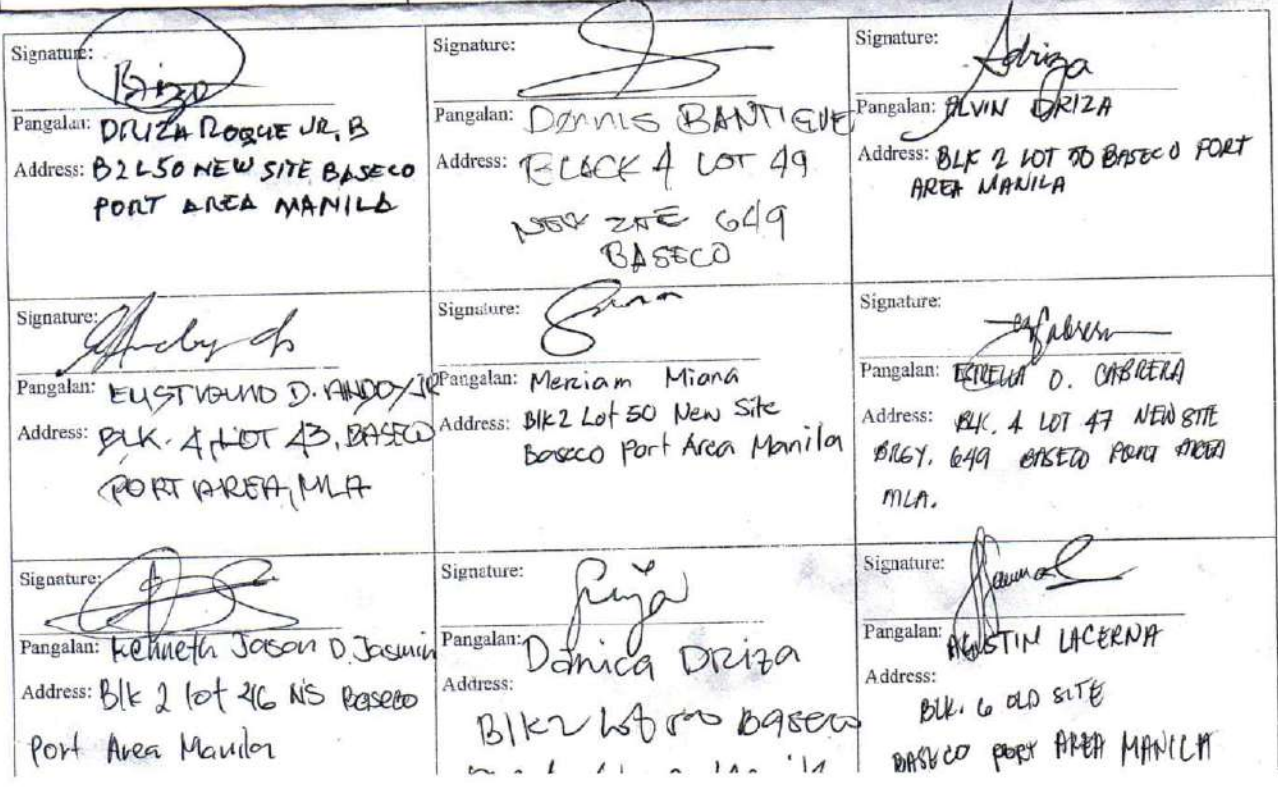 Signature: Driza
Pangalan: DRIZA ROQUE JR. B
Address: B2 L50 NEW SITE BASECO
PORT AREA MANILA
Signature:
Pangalan: DENNIS BANTIGUE
Address: BLOCK 4 LOT 49
NEW 649
BASECO
Signature: Adriza
Pangalan: ALVIN DRIZA
Address: BLK 2 LOT 50 BASECO PORT
AREA MANILA
Signature:
Pangalan: D. ANDOY JR
Address: BLK. 4, LOT 43, BASECO
PORT AREA, MLA
Signature:
Pangalan: Merciam Miana
Address: Blk 2 Lot 50 New Site
Baseco Port Area Manila
Signature:
Pangalan: ESTRELLA O. CABRERA
Address: BLK. 4 LOT 47 NEW SITE
BRGY. 649 BASECO PORT AREA
MLA.
Signature:
Pangalan: Kenneth Jason D. Jasmin
Address: Blk 2 lot NS Baseco
Port Area Manila
Signature:
Pangalan: Danica DRiza
Address:
Blk 2 Lot 50 Baseco
Signature:
Pangalan: AGUSTIN LACERNA
Address:
BLK. 6 OLD SITE
BASECO PORT AREA MANILA